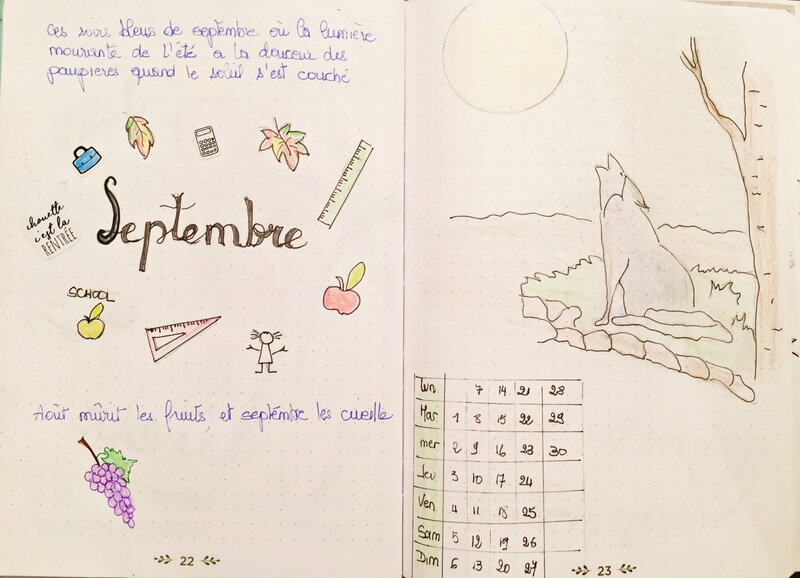 Ces soirs bleus de septembre où la lumière
mourante de l'été a la douceur des
paupières quand le soleil s'est couché
chouette
c'est la
RENTRÉE
Septembre
SCHOOL
Août mûrit les fruits, et septembre les cueille
22
Lun 7 14 21 28
Mar 1 8 15 22 29
mer 2 9 16 23 30
Jeu 3 10 17 24
Ven 4 11 18 25
Sam 5 12 19 26
Dim 6 13 20 27
23